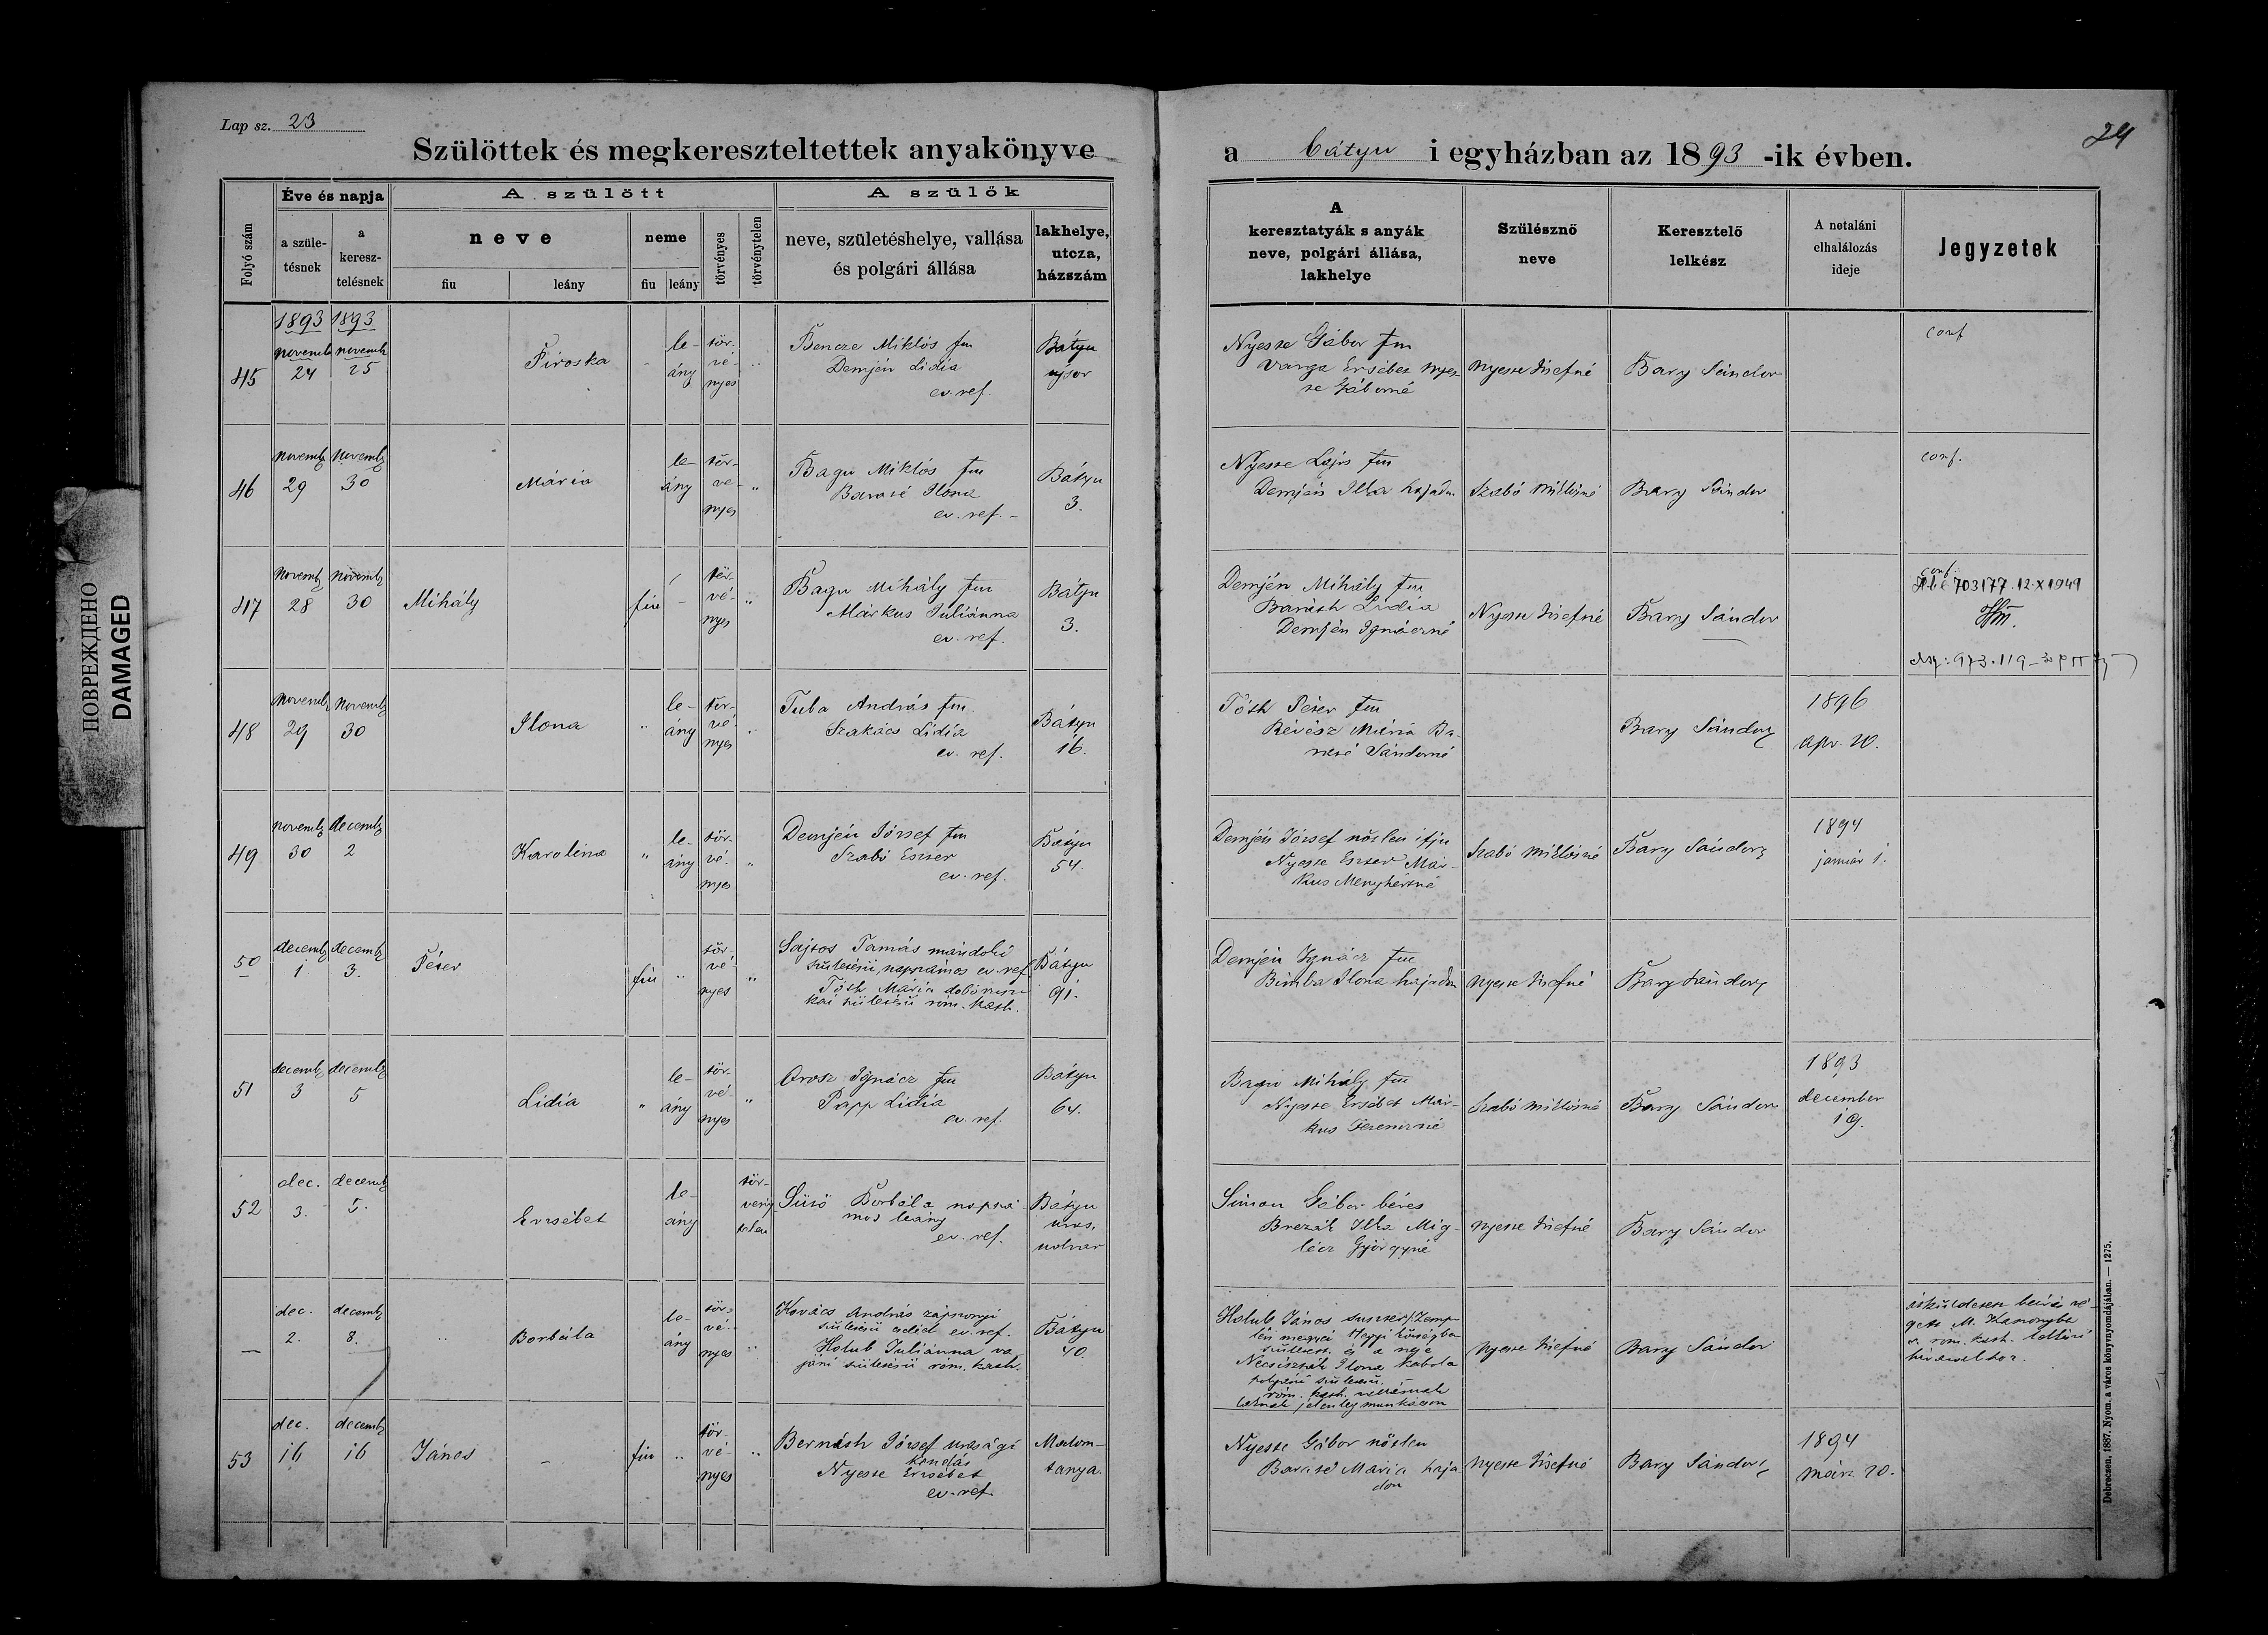 Lap sz. 23
Szülöttek és megkereszteltettek anyakönyve
a bátyu i egyházban az 1893 -ik évben.
24
ПОВРЕЖДЕНО
DAMAGED
Folyó szám
Éve és napja
a szüle-
tésnek
a
keresz-
telésnek
A szülött
neve
fiu
leány
neme
fiu
leány
törvényes
törvénytelen
A szülők
neve, születéshelye, vallása
és polgári állása
lakhelye,
utcza,
házszám
A
keresztatyák s anyák
neve, polgári állása,
lakhelye
Szülésznő
neve
Keresztelő
lelkész
A netaláni
elhalálozás
ideje
Jegyzetek
45
1893
novemb
24
1893
novemb
25
Piroska
le-
ány
tör-
vé-
nyes
Bencze Miklós fm
Demjén Lidia
ev. ref.
Bátyu
ujsor
Nyeste Gábor fm
Varga Ersébet Nyes-
te Gáborné
Nyeste Józsefné
Bary Sándor
conf
46
novemb
29
novemb
30
Mária
le-
ány
tör-
vé-
nyes
Bagu Miklós fm
Ilona
ev. ref.
Bátyu
3.
Nyeste Lajos fm
Demjén Ilka hajadon
Szabó Miklósné
Bary Sándor
conf.
47
novemb
28
novemb
30
Mihály
fiu
tör-
vé-
nyes
Bagu Mihály fm
Márkus Juliánna
ev. ref.
Bátyu
3.
Demjén Mihály fm
Lidia
Demjén Ignáczné
Nyeste Józsefné
Bary Sándor
conf.
703177.12.X1949
48
novemb
29
novemb
30
Ilona
le-
ány
tör-
vé-
nyes
Tuba András fm.
Szakács Lidia
ev. ref.
Bátyu
16.
Tóth Péter fm
Révész Mária
Sándorné
Bary Sándor
1896
apr. 20.
49
novemb
30
decemb
2
Karolina
le-
ány
tör-
vé-
nyes
Demjén József fm
Szabó Eszter
ev. ref.
Bátyu
54.
Demjén József nőtlen ifju
Nyeste Eszter Már-
kus Menyhértné
Szabó Miklósné
Bary Sándor
1894
január 1.
50
decemb
1
decemb
3.
Péter
fiu
tör-
vé-
nyes
Sajtos Tamás mándoki
születésü, napszámos ev. ref.
Tóth Mária
születésü róm. kath.
Bátyu
91.
Demjén Ignácz fm
Bimba Ilona hajadon
Nyeste Józsefné
Bary Sándor
51
decemb
3
decemb
5
Lidia
le-
ány
tör-
vé-
nyes
Orosz Ignácz fm
Papp Lidia
ev. ref.
Bátyu
64.
Bagu Mihály fm
Nyeste Ersébet Már-
kus Ferenczné
Szabó Miklósné
Bary Sándor
1893
december
19.
52
dec.
3.
decemb
5.
Erzsébet
le-
ány
tör-
vény
telen
Sütő Borbála napszá-
mos leány
ev. ref.
Bátyu
uras.
udvar
Simon Gábor béres
Brezák Ilka Mig-
lécz Györgyné
Nyeste Józsefné
Bary Sándor
dec.
2.
decemb
8.
Borbála
le-
ány
tör-
vé-
nyes
Kovács András zápszonyi
születésü cseléd ev. ref.
Holub Juliánna va-
jáni születésü róm. kath.
Bátyu
40.
Holub János
lén megyei
született és a neje
Ilona
születésü,
róm. kath.
jelenleg munkácson
Nyeste Józsefné
Bary Sándor
beirás vé-
gett M. Kaszonyba
a róm. kath. lelkészi
hivatalhoz.
53
dec.
16
decemb
16
János
fiu
tör-
vé-
nyes
Bernáth József urasági
kondás
Nyeste Erzsébet
ev. ref.
Malom-
tanya.
Nyeste Gábor nőtlen
Mária haja
don
Nyeste Józsefné
Bary Sándor
1894
márc. 20.
Debreczen, 1887. Nyom. a város könyvnyomdájában. — 1275.